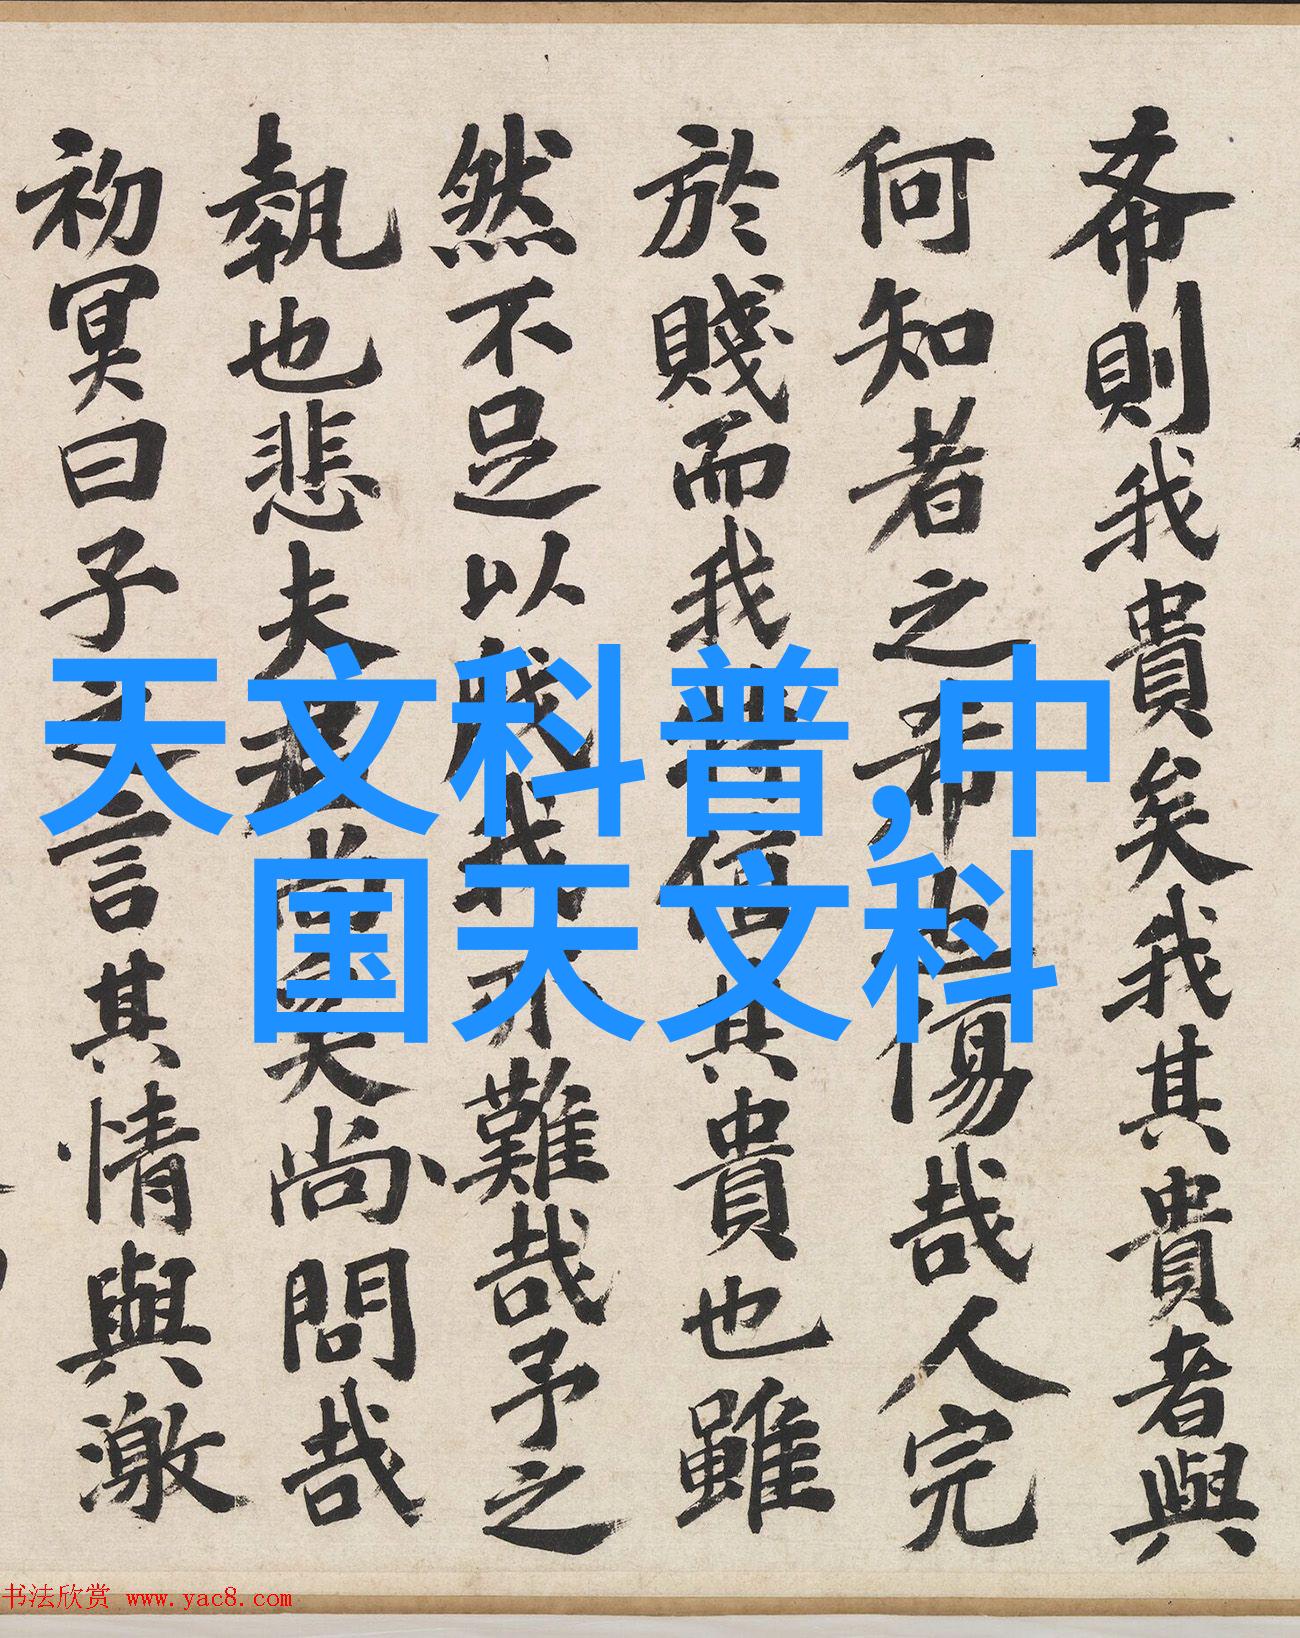 希則我貴矣我其貴者與
何知者之希也傷哉人完
於賤而我信其貴也雖
然不足以我不難哉予之
執也悲夫尚矣尚問哉
初冥曰子之言其情與激
天文科普,中
国天文科
书法欣赏 www.yac8.com